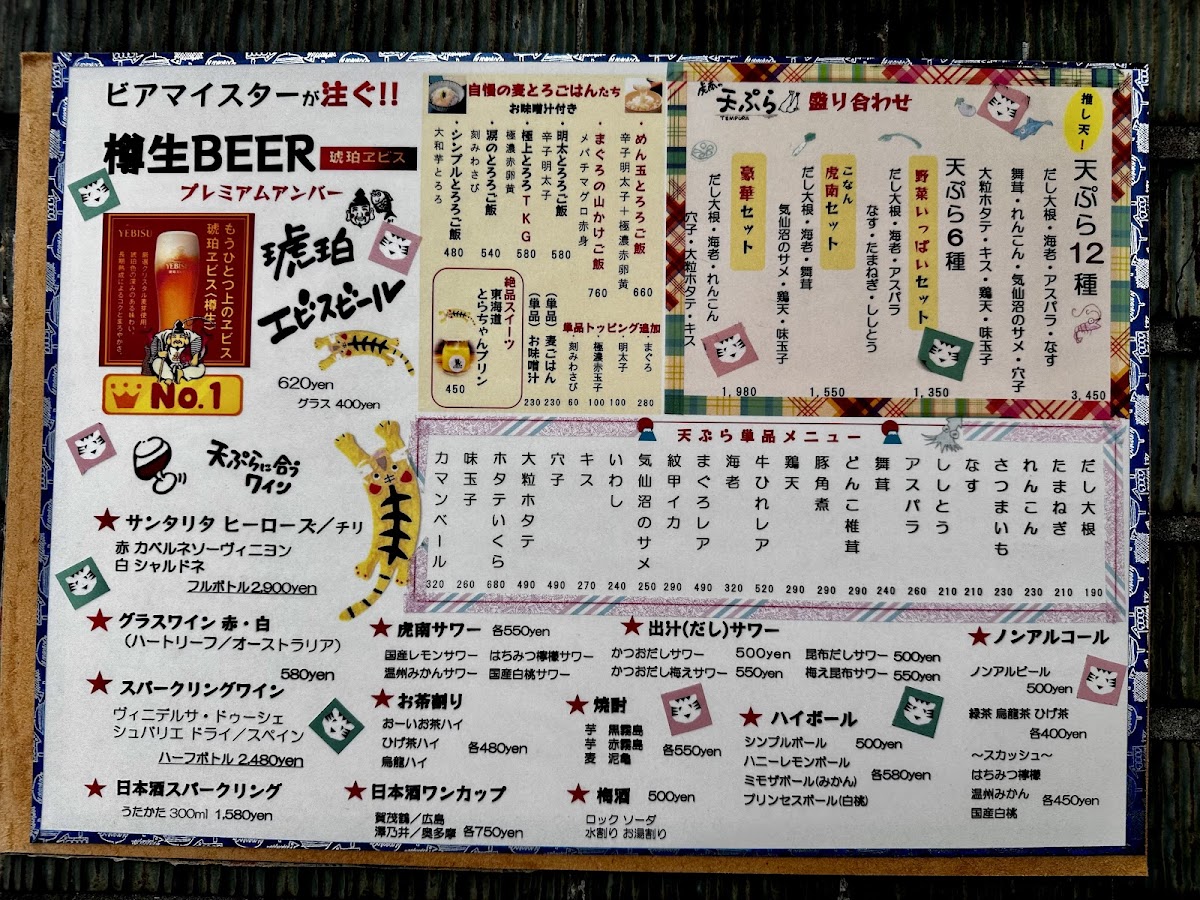 ビアマイスターが注ぐ!!
樽生BEER 琥珀ヱビス
プレミアムアンバー
YEBISU
もうひとつ上のヱビス
琥珀ヱビス〈樽生〉
厳選クリスタル麦芽使用。
琥珀色の深みのある味わい。
長期熟成によるコクとまろやかさ。
YEBISU
No.1
琥珀
エビスビール
620yen
グラス 400yen
自慢の麦とろごはんたち
お味噌汁付き
めん玉とろろご飯
辛子明太子+極濃赤卵黄
660
まぐろの山かけご飯
メバチマグロ赤身
760
明太とろろご飯
辛子明太子
580
極上とろろTKG
極濃赤卵黄
580
涙のとろろご飯
刻みわさび
540
シンプルとろろご飯
大和芋とろろ
480
絶品スイーツ
東海道
とらちゃんプリン
450
単品トッピング追加
・まぐろ 280
・明太子 100
・極濃赤玉子 100
・刻みわさび 60
(単品)麦ごはん 230
(単品)お味噌汁 230
虎南の
天ぷら
TEMPURA
盛り合わせ
推し天!
天ぷら12種
だし大根・海老・アスパラ・なす
舞茸・れんこん・気仙沼のサメ・穴子
大粒ホタテ・キス・鶏天・味玉子
3,450
天ぷら6種
野菜いっぱいセット
だし大根・海老・アスパラ
なす・たまねぎ・ししとう
1,350
こなん
虎南セット
だし大根・海老・舞茸
気仙沼のサメ・鶏天・味玉子
1,550
豪華セット
だし大根・海老・れんこん
穴子・大粒ホタテ・キス
1,980
天ぷら単品メニュー
だし大根 190
たまねぎ 210
れんこん 230
さつまいも 230
なす 210
ししとう 210
アスパラ 260
舞茸 240
どんこ椎茸 290
豚角煮 290
鶏天 290
牛ひれレア 520
海老 320
まぐろレア 490
紋甲イカ 290
気仙沼のサメ 250
いわし 240
キス 270
穴子 490
大粒ホタテ 490
ホタテいくら 680
味玉子 260
カマンベール 320
天ぷらに合う
ワイン
★サンタリタ ヒーローズ/チリ
赤 カベルネソーヴィニヨン
白 シャルドネ
フルボトル2,900yen
★グラスワイン 赤・白
(ハートリーフ/オーストラリア)
580yen
★スパークリングワイン
ヴィニデルサ・ドゥーシェ
シュバリエ ドライ/スペイン
ハーフボトル 2,480yen
★日本酒スパークリング
うたかた 300ml 1,580yen
★虎南サワー 各550yen
国産レモンサワー はちみつ檸檬サワー
温州みかんサワー 国産白桃サワー
★お茶割り
おーいお茶ハイ
ひげ茶ハイ 各480yen
烏龍ハイ
★日本酒ワンカップ
賀茂鶴/広島
澤乃井/奥多摩 各750yen
★出汁(だし)サワー
かつおだしサワー 500yen 昆布だしサワー 500yen
かつおだし梅えサワー 550yen 梅え昆布サワー 550yen
★焼酎
芋 黒霧島
芋 赤霧島 各550yen
麦 泥亀
★梅酒 500yen
ロック ソーダ
水割り お湯割り
★ハイボール
シンプルボール 500yen
ハニーレモンボール
ミモザボール(みかん) 各580yen
プリンセスボール(白桃)
★ノンアルコール
ノンアルビール
500yen
緑茶 烏龍茶 ひげ茶
各400yen
～スカッシュ～
はちみつ檸檬
温州みかん 各450yen
国産白桃